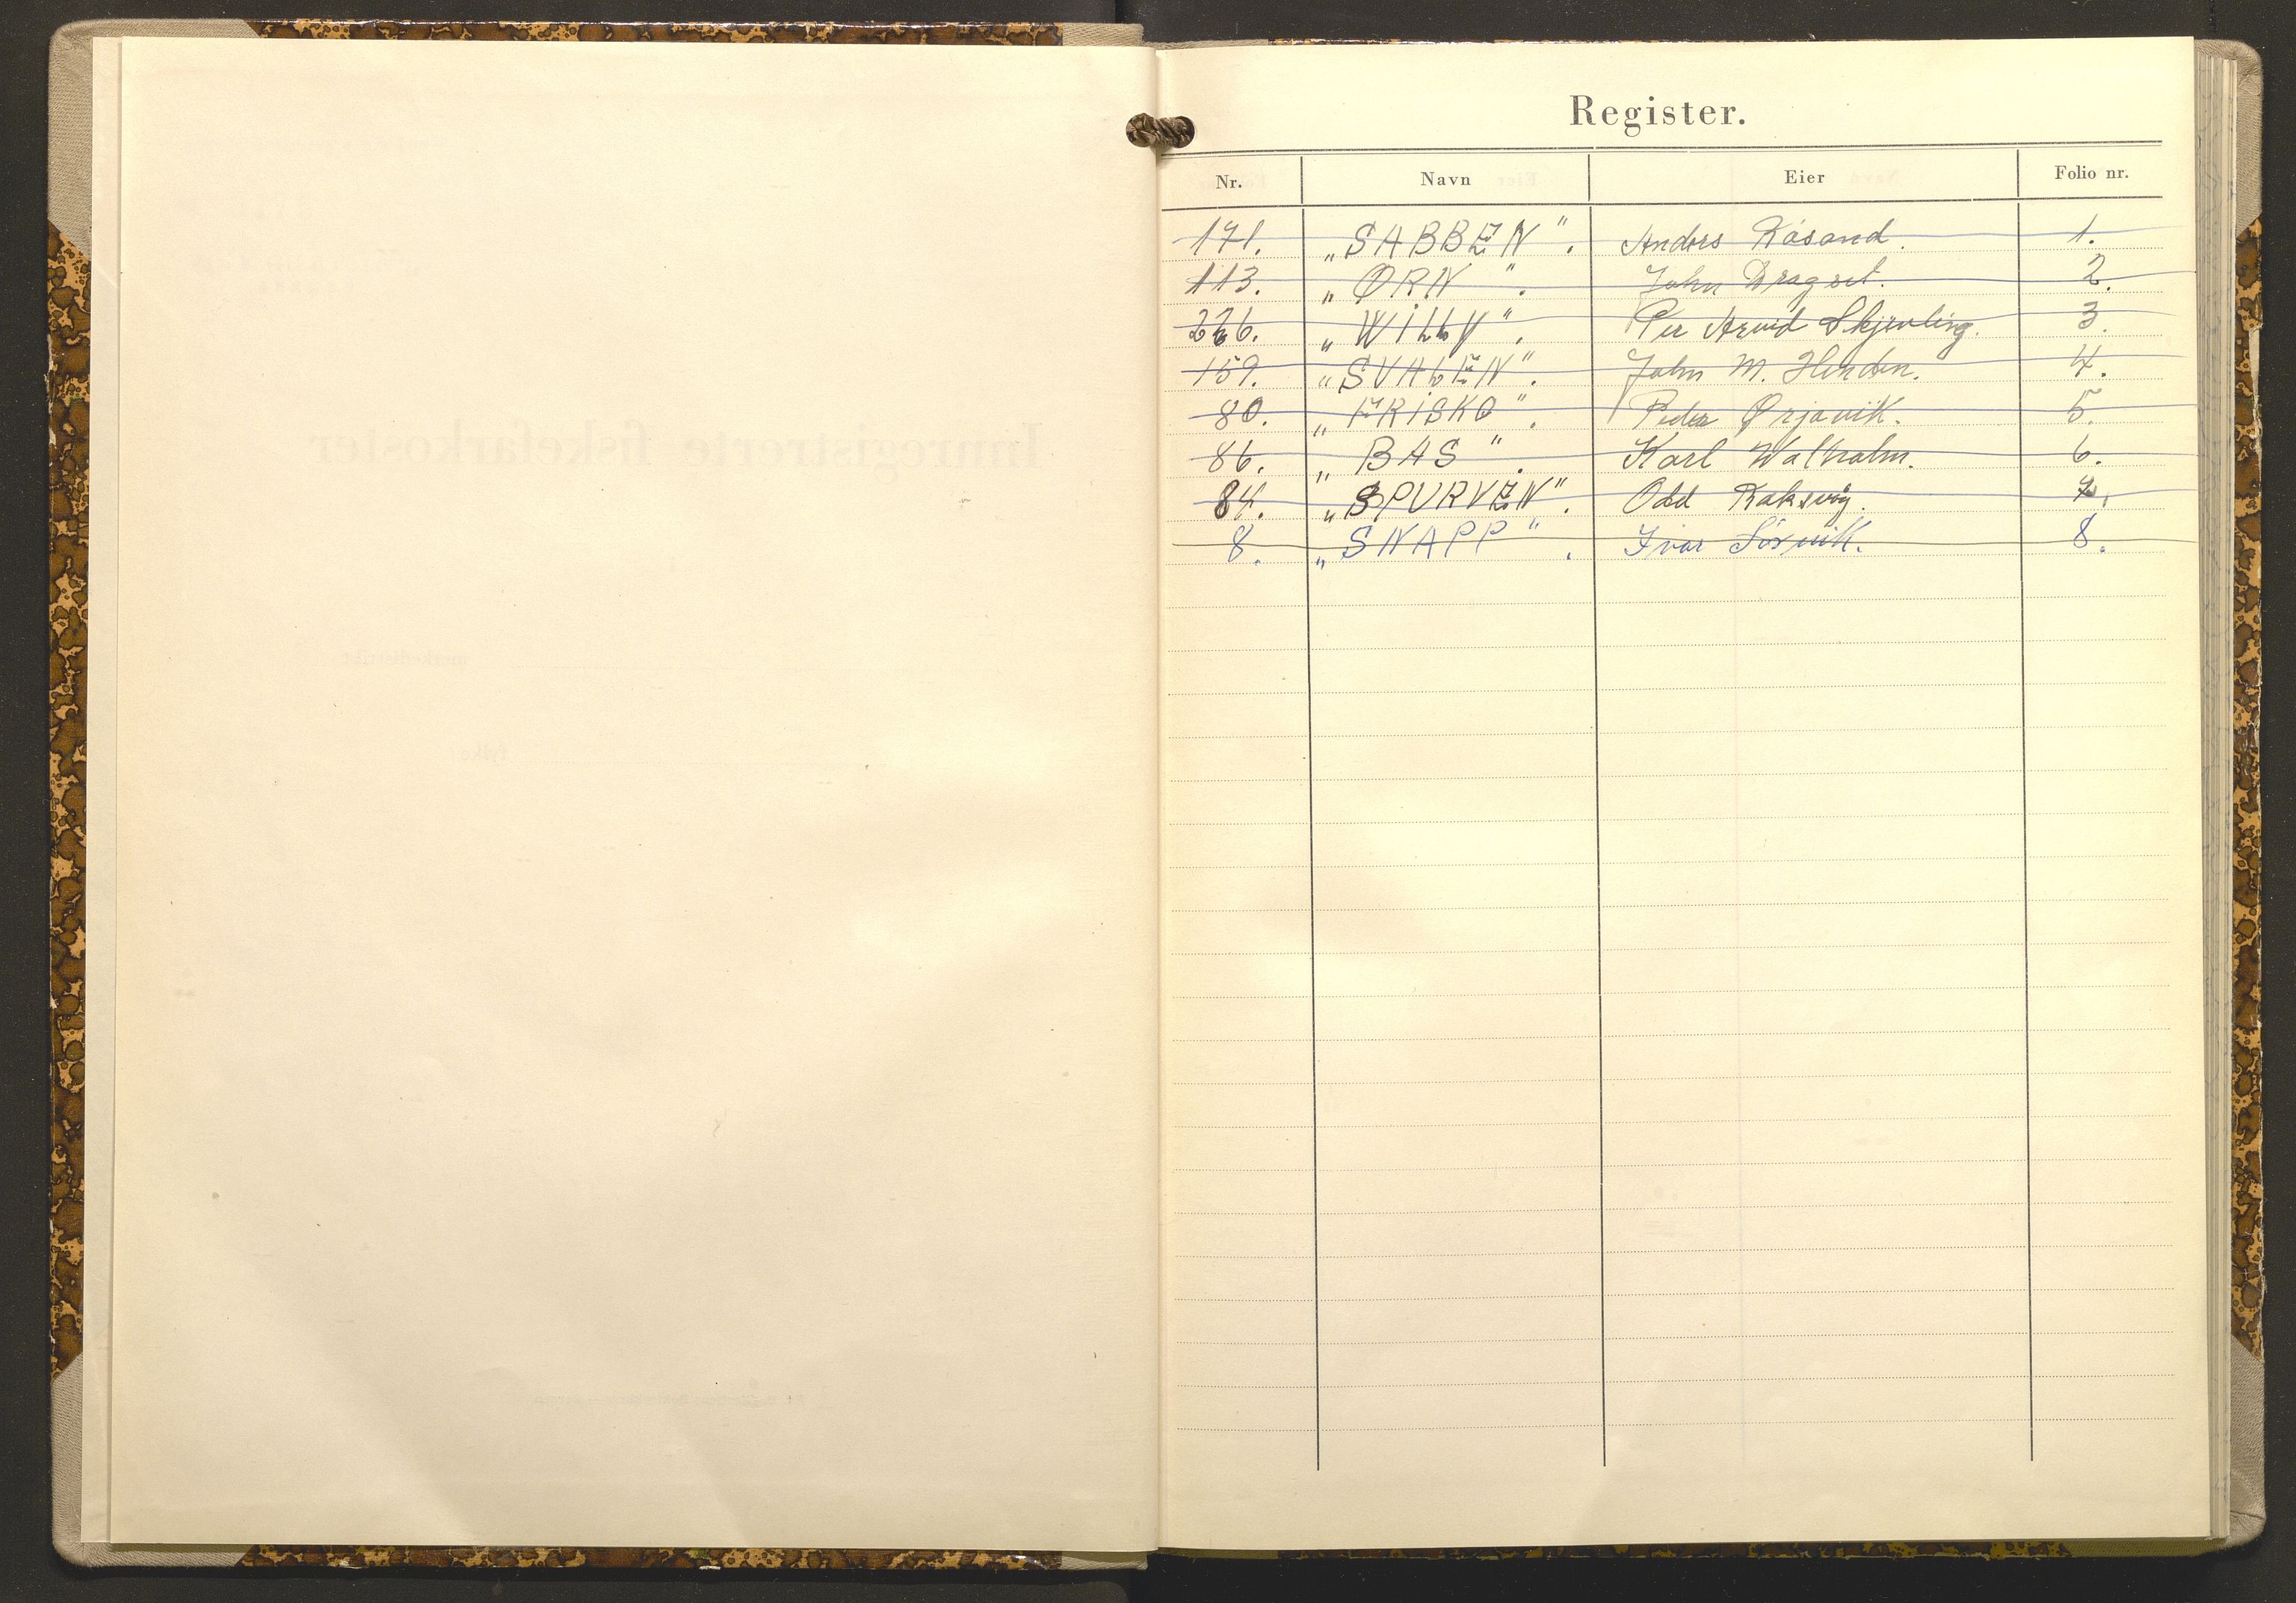 Register.
Nr. Navn Eier Folio nr.
171. „SABBEN". Anders Råsand. 1.
113. „ØRN". John Dragset. 2.
226. „WiLLY". Per Arvid Skjevling. 3.
159. „SVALEN". John M. Henden. 4.
80. „FRiSKO". Peder Ørjavik. 5.
86. „BAS". Karl Walholm. 6.
84. „SPURVEN". Odd Rakvåg. 7.
8. „SNAPP". Ivar Sørvik. 8.
Innregistrerte fiskefarkoster
merkedistrikt
fylke